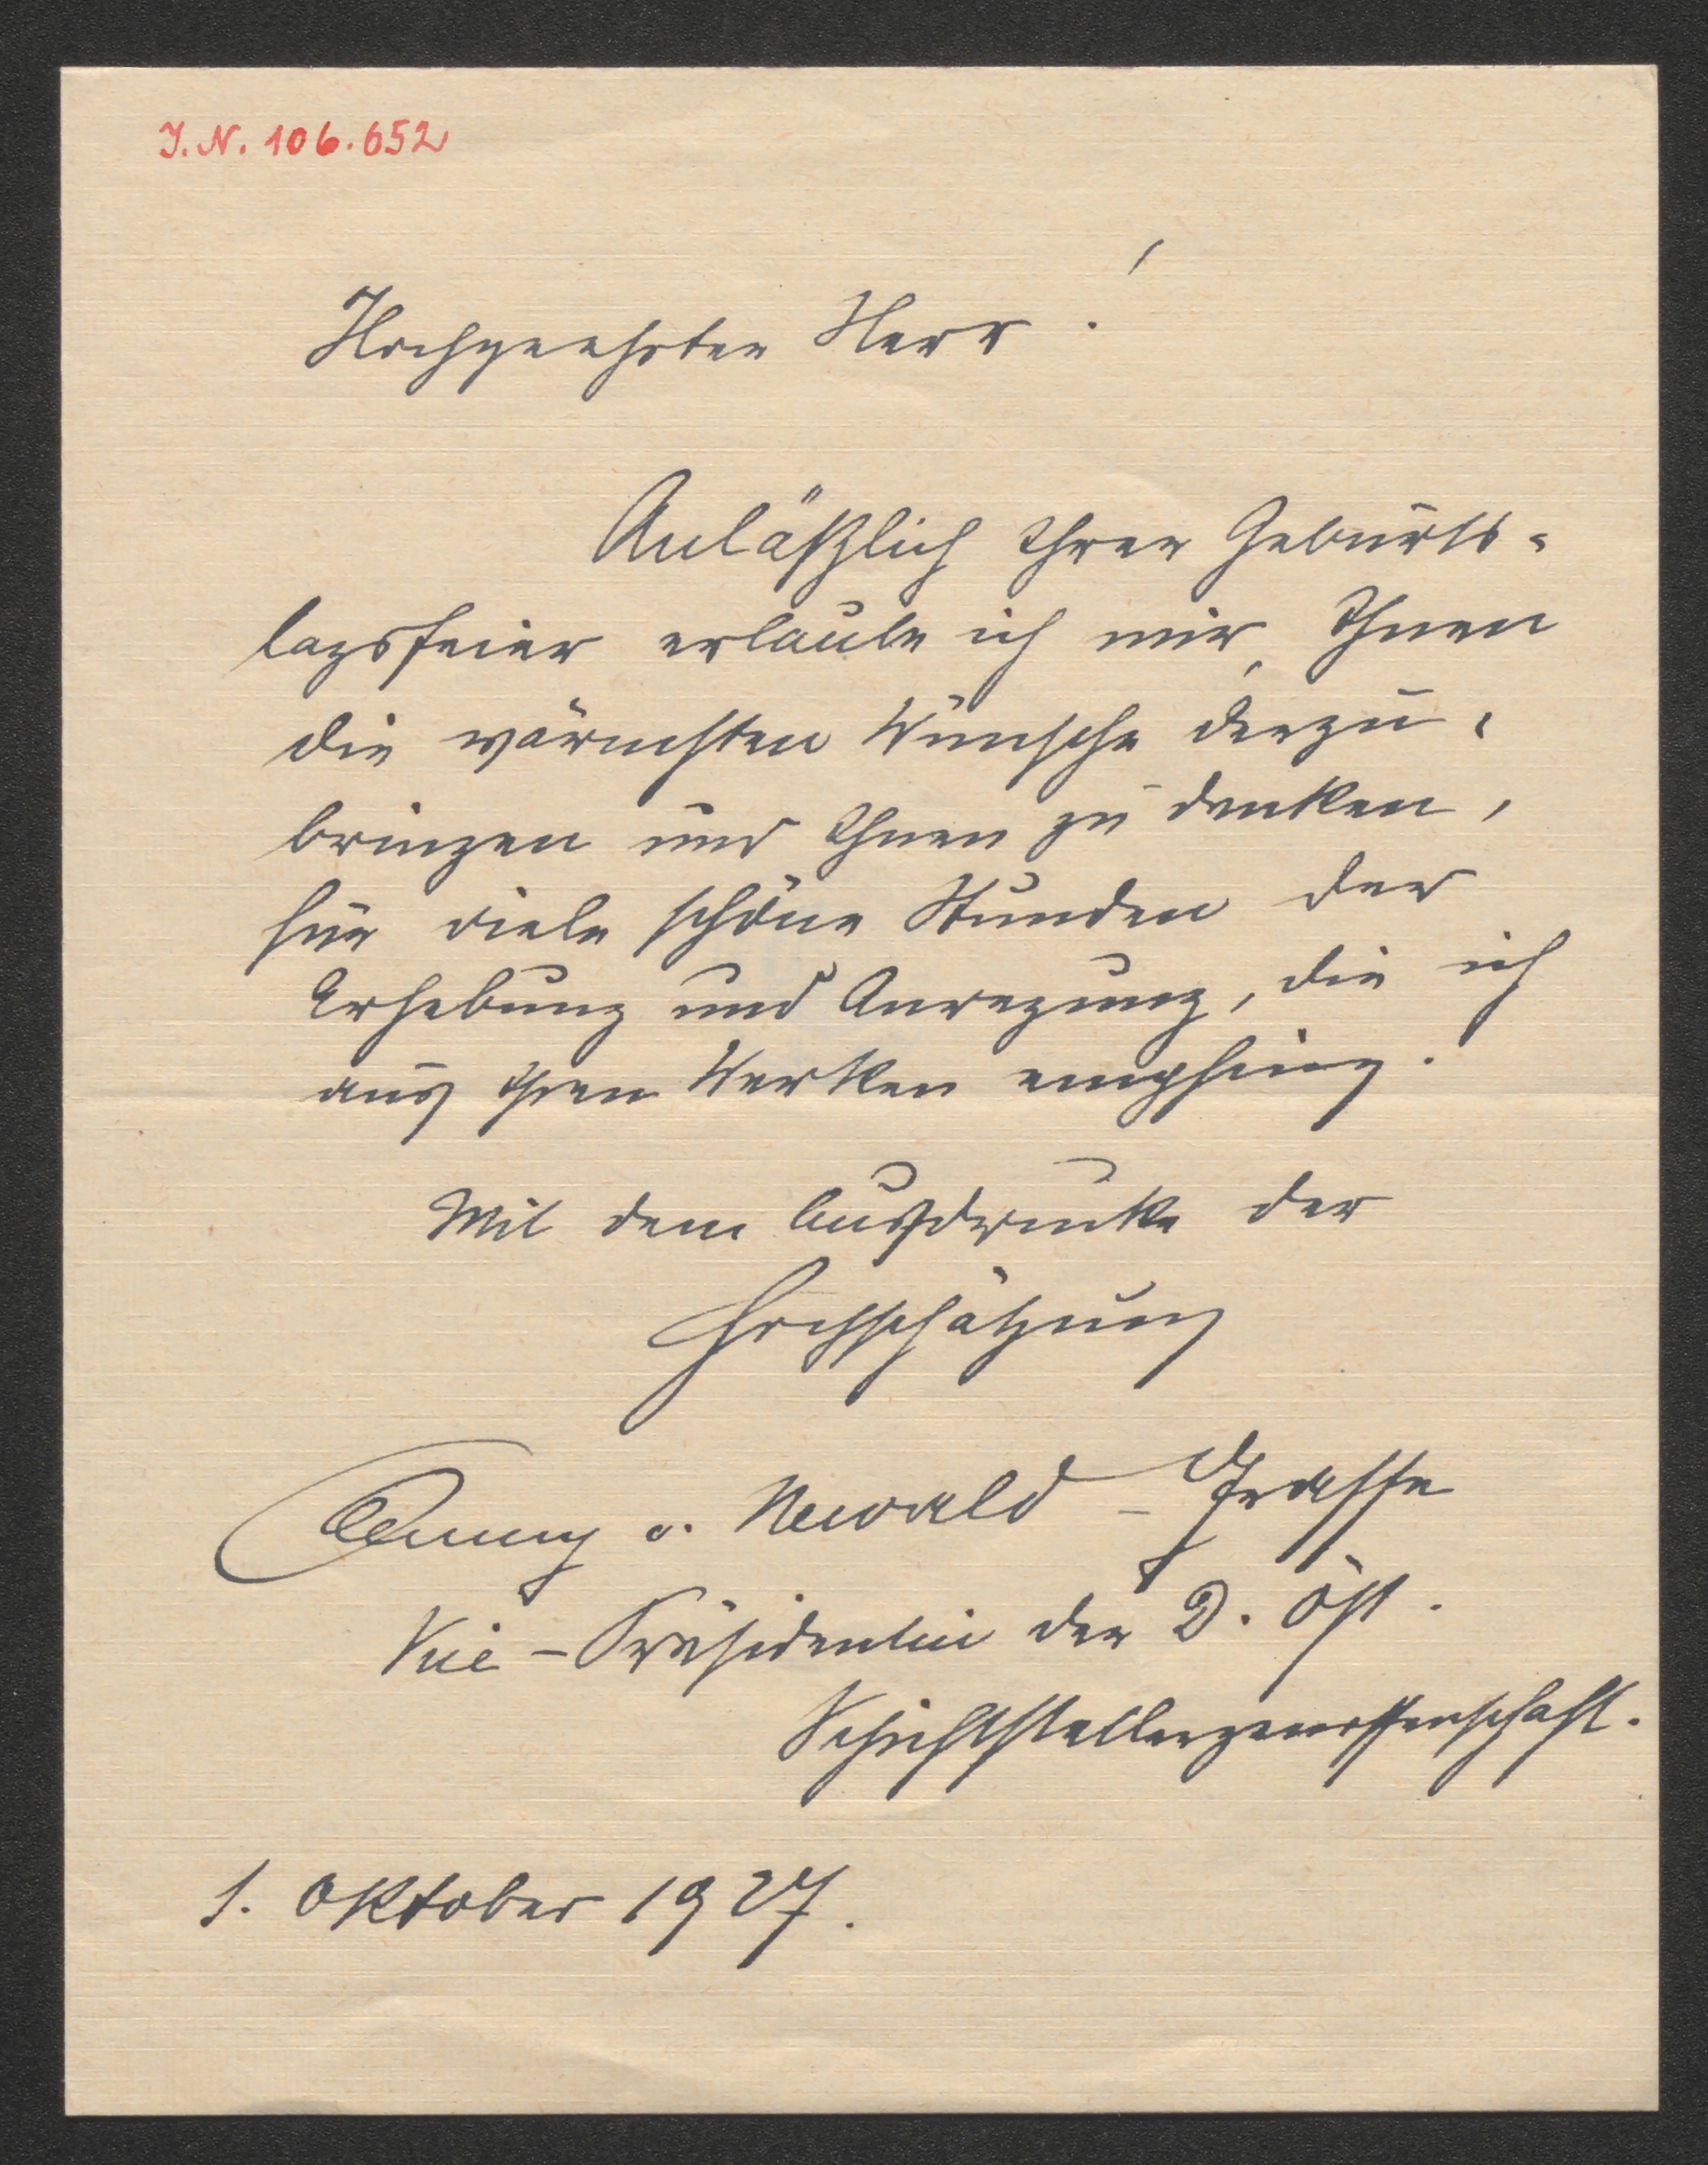 I. N. 106.652
Hochgeehrter Herr!
Anläßlich Ihrer Geburts-
tagsfeier erlaube ich mir, Ihnen
die wärmsten Wünsche darzu-
bringen und Ihnen zu danken,
für viele schöne Stunden der
Erhebung und Anregung, die ich
aus Ihren Werken empfing.
Mit dem Ausdrucke der
Hochschätzung
v. Newald - Grasse
Vice-Präsidentin der D. Öst.
Schriftstellergenossenschaft.
1. Oktober 1927.